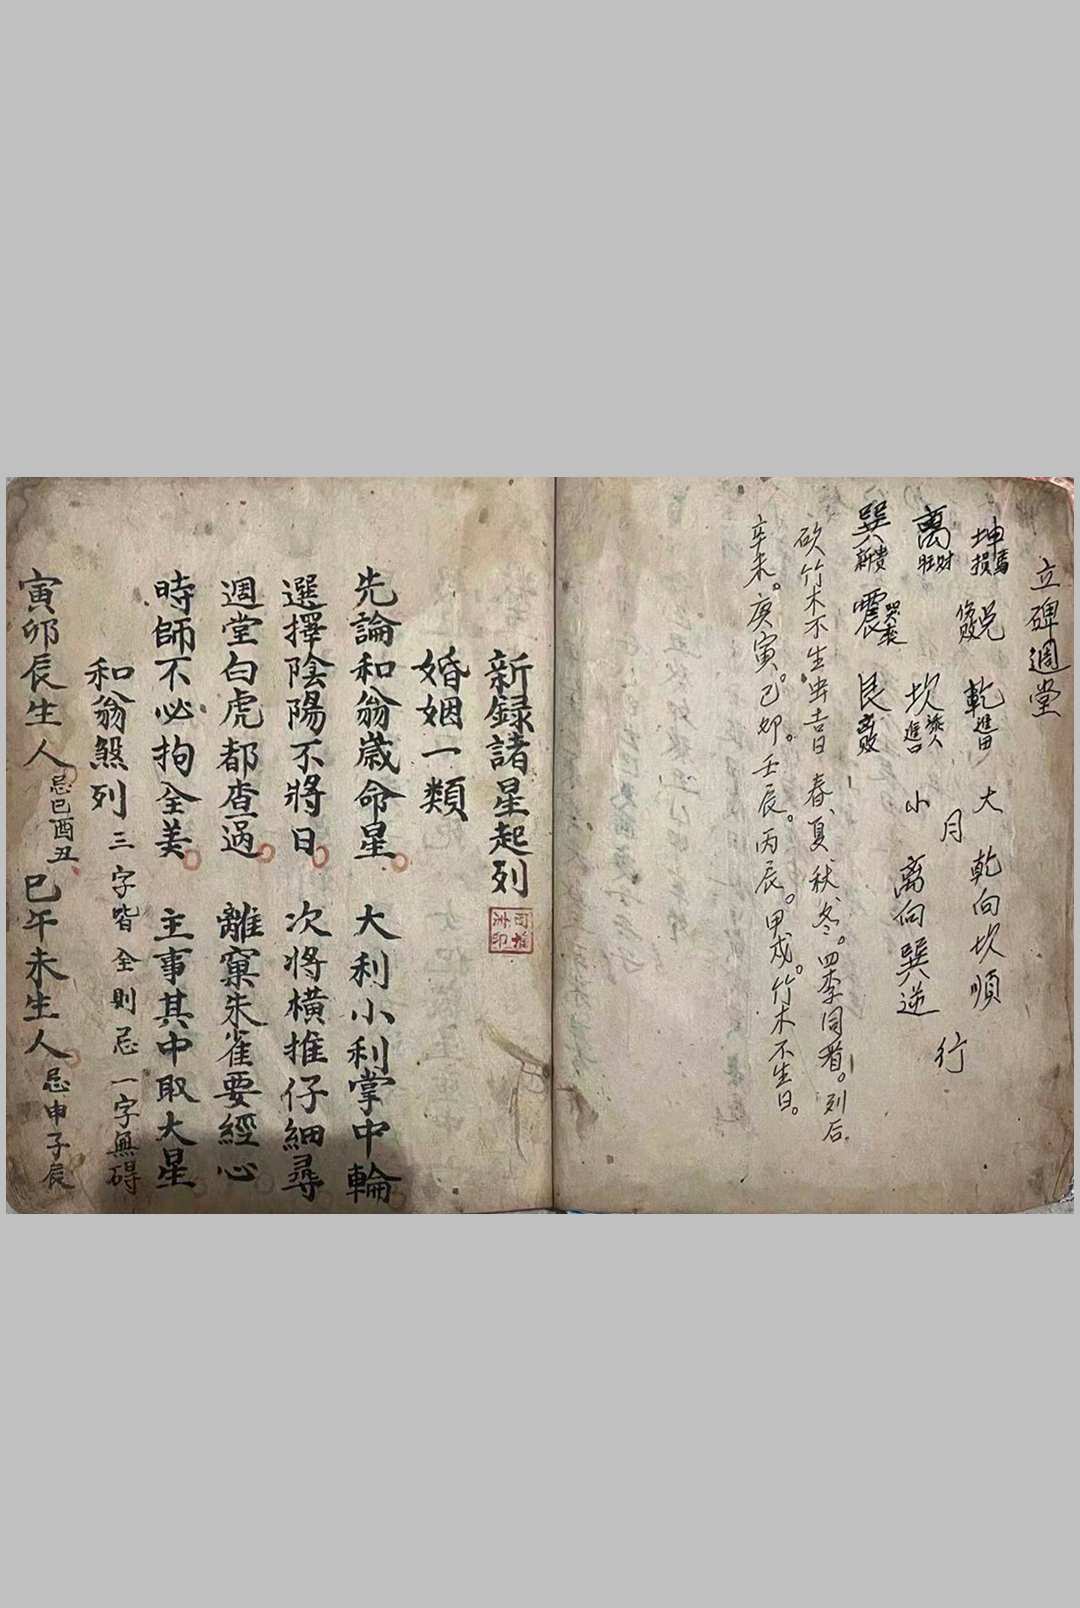 立碑週堂
坤 損 兌 乾 進田
離 旺財 坎 添人 進口
巽 新貴 震 哭喪 艮
大 乾向坎順
月
小 离向巽逆
行
砍竹木不生虫吉日 春、夏、秋、冬。四季同看。列后。
辛未。庚寅。己卯。壬辰。丙辰。甲戌。竹木不生日。
新録諸星起列
婚姻一類
先論和翁歲命星。 大利小利掌中輪
選擇陰陽不將日。 次將橫推仔細尋
週堂白虎都查過。 離窠朱雀要經心
時師不必拘全美。 主事其中取大星
和翁煞列 三字皆全則忌 一字無碍
寅卯辰生人 忌巳酉丑、 巳午未生人。 忌申子辰